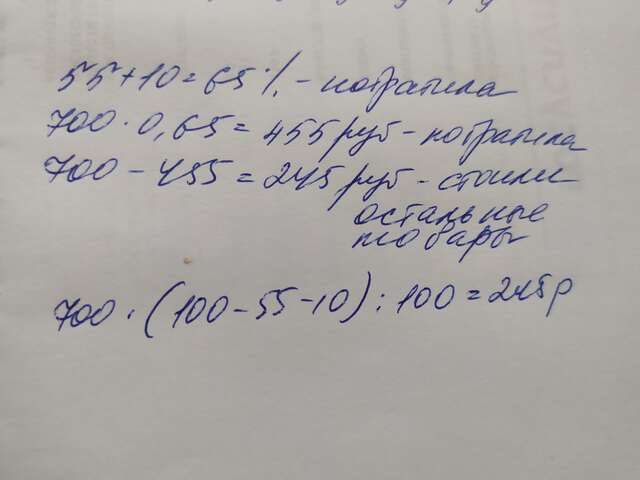 55+10=65% - потратила
700 · 0,65 = 455 руб - потратила
700 - 455 = 245 руб - стоили
остальные
товары
700 · (100-55-10) : 100 = 245 р